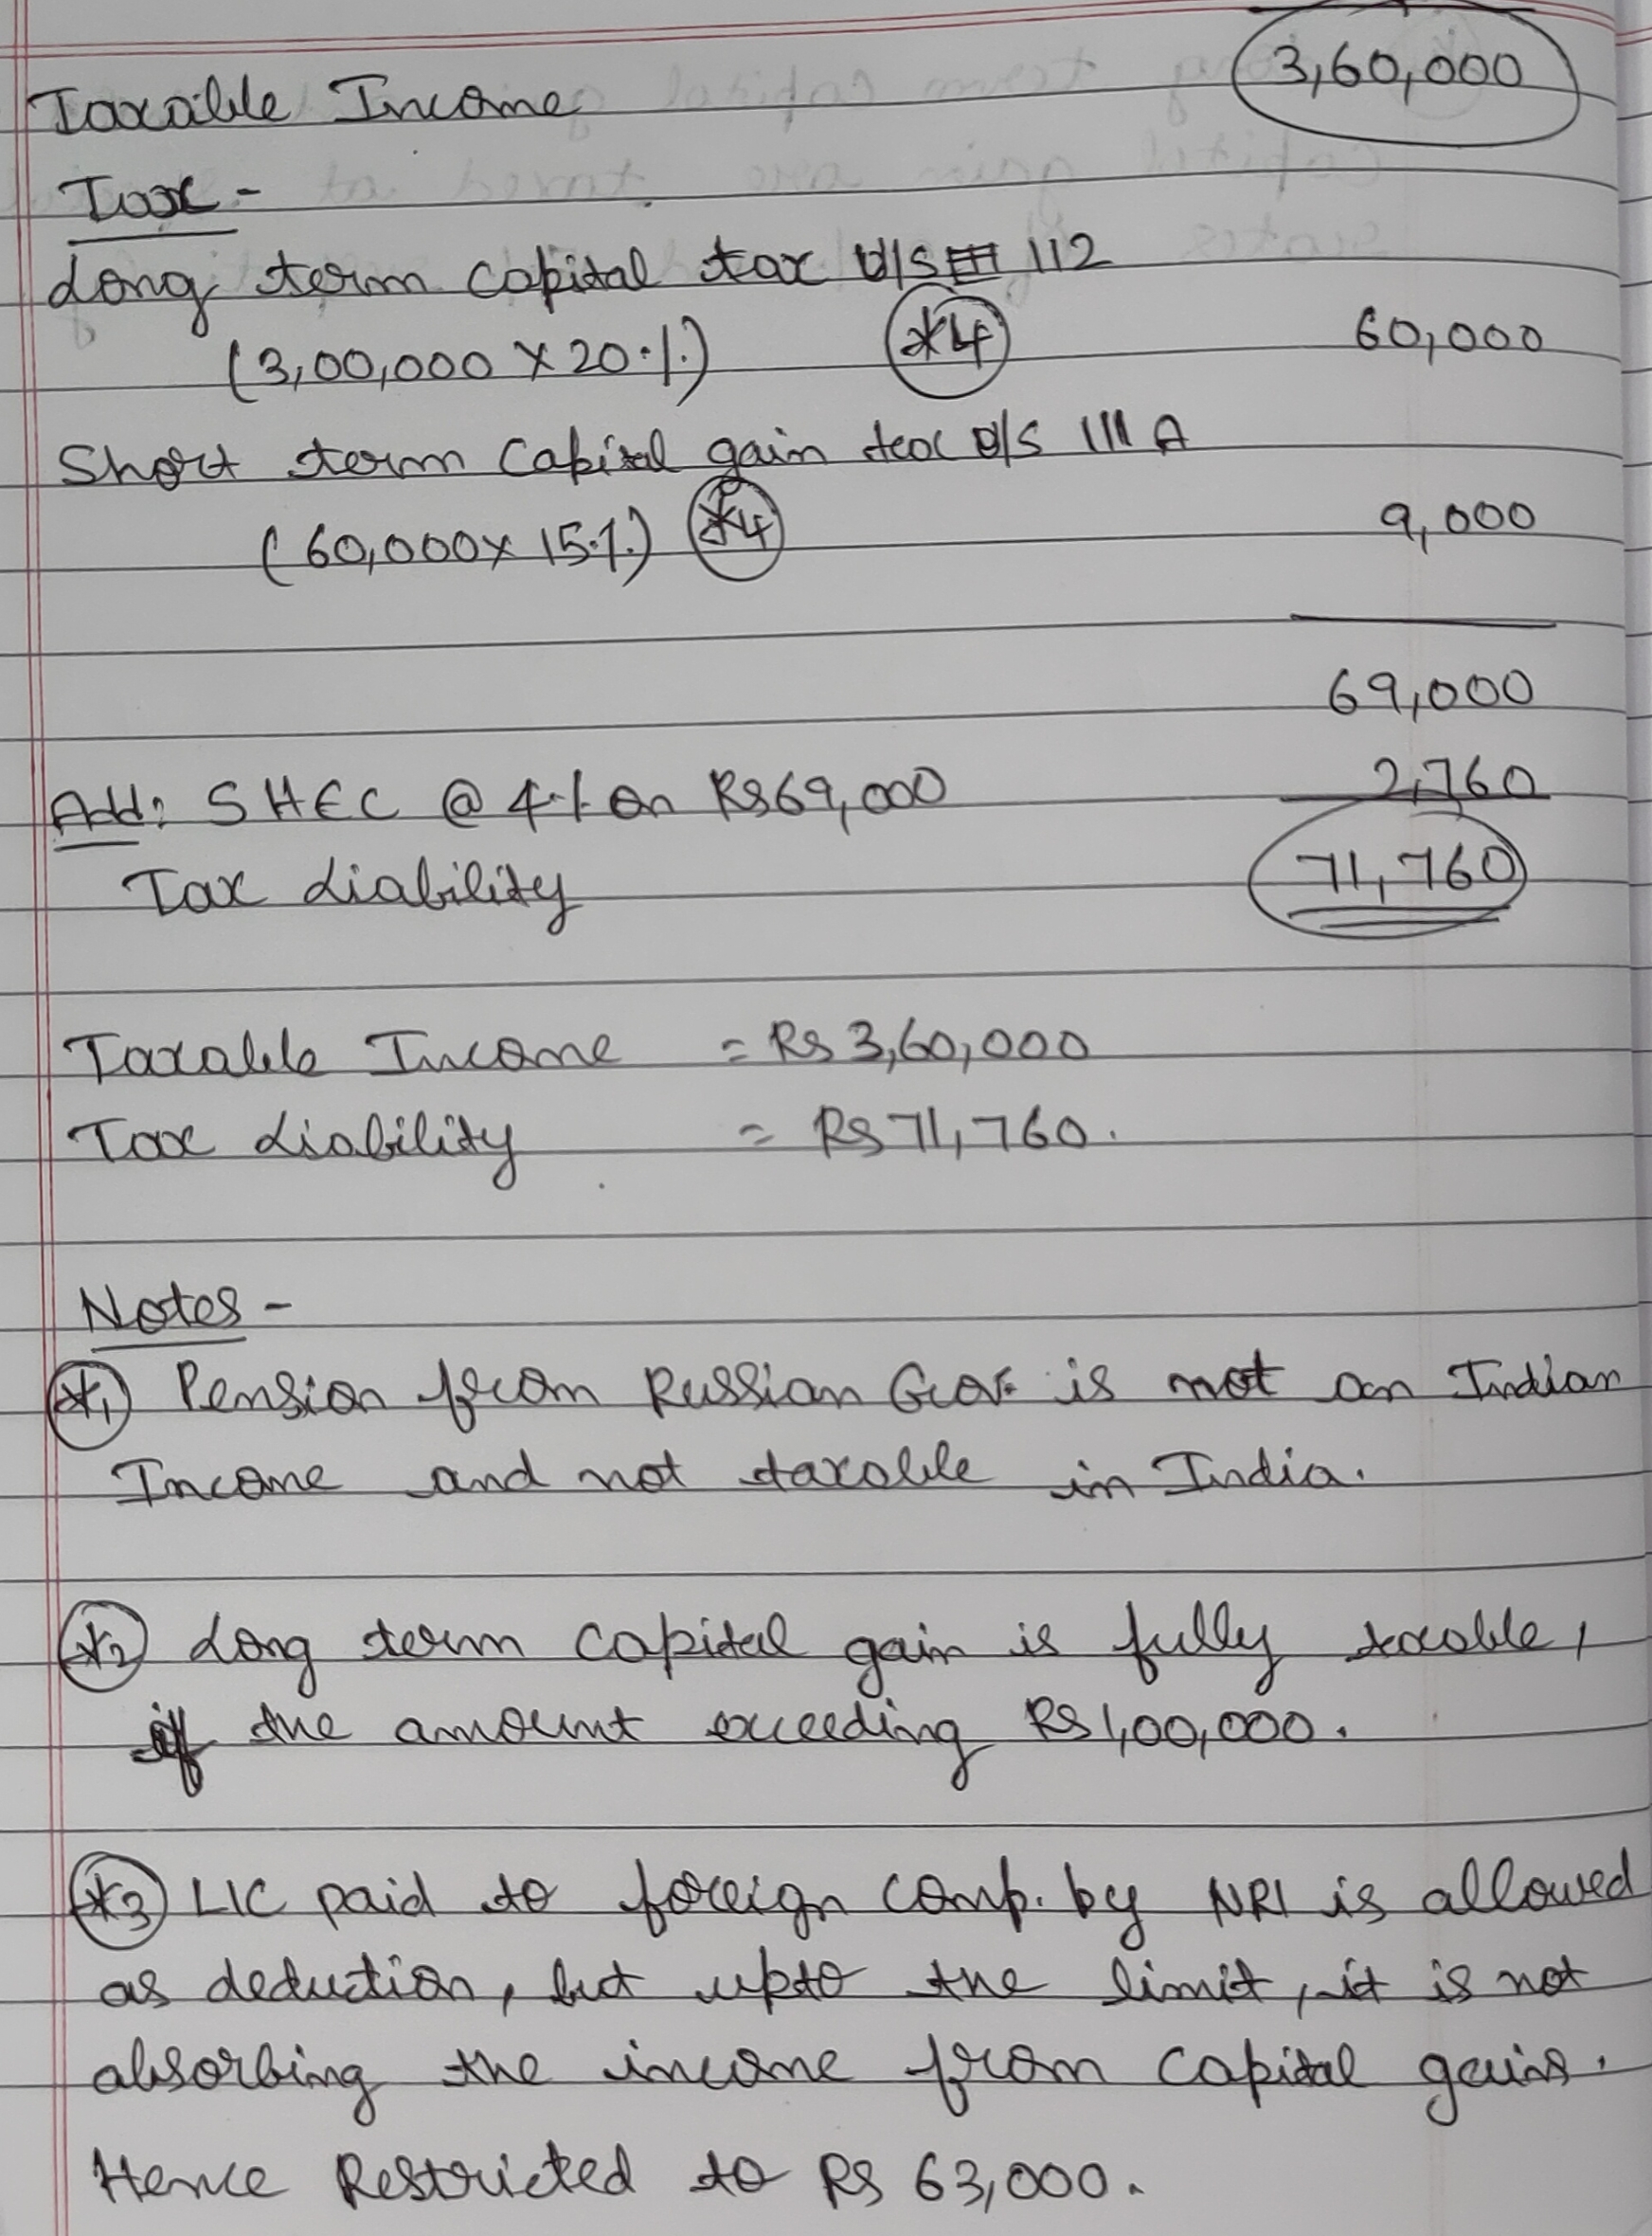 3,60,000
Taxable Income
Tax -
Long term capital tax U/S 112
(3,00,000 X 20%) *4 60,000
Short term Capital gain tax U/S 111 A
(60,000 X 15%) *4 9,000
69,000
Add: SHEC @ 4% on Rs 69,000 2,760
Tax Liability 71,760
Taxable Income = Rs 3,60,000
Tax Liability = Rs 71,760.
Notes -
*1 Pension from Russian Gov. is not an Indian
Income and not taxable in India.
*2 Long term capital gain is fully taxable,
if the amount exceeding Rs 1,00,000.
*3 LIC paid to foreign comp. by NRI is allowed
as deduction, but upto the limit, it is not
absorbing the income from capital gains.
Hence Restricted to Rs 63,000.